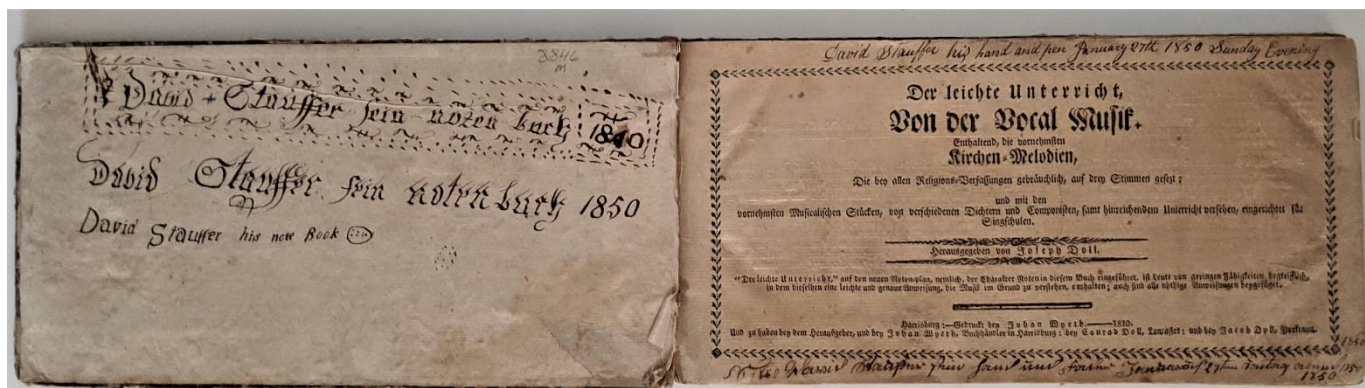 8846
m
David Stauffer sein noten buch 1840
David Stauffer sein noten buch 1850
David Stauffer his note Book
David Stauffer his hand and pen January 27th 1850 Sunday Evening
Der leichte Unterricht,
Von der Vocal Musik.
Enthaltend, die vornehmsten
Kirchen-Melodien,
Die bey allen Religions-Verfassungen gebräuchlich, auf drey Stimmen gesezt;
und mit den
vornehmsten Musicalischen Stücken, von verschiedenen Dichtern und Componisten, samt hinreichendem Unterricht versehen, eingerichtet für
Singschulen.
Herausgegeben von Joseph Doll.
"Der leichte Unterricht," auf den neuen Notenplan, nemlich, der Charakter Noten in diesem Buch eingeführet, ist Leute von geringen Fähigkeiten begreiflich,
in dem dieselben eine leichte und genaue Anweisung, die Musik im Grund zu verstehen, enthalten; auch sind alle nöthige Anweisungen beygefüget.
Harrisburg:—Gedruckt bey Johan Wyeth.——1810.
Und zu haben bey dem Herausgeber, und bey Johan Wyeth, Buchhändler in Harrisburg: bey Conrad Doll, Lancaster; und bey Jacob Doll, Yorktaun.
1850
Stauffer sein hand und 27ten
1850